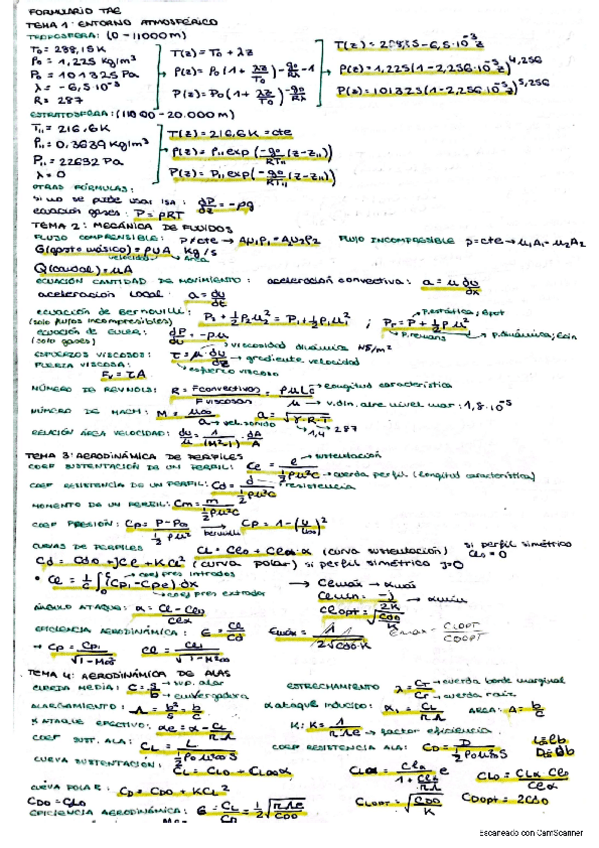 FORMULARIO TAE
TEMA 1: ENTORNO ATMOSFÉRICO
TROPOSFERA: (0-11000m)
T₀ = 288,15K
ρ₀ = 1,225 kg/m³
P₀ = 101325 Pa
λ = -6,5·10⁻³
R = 287
T(z) = T₀ + λz
ρ(z) = ρ₀(1 + λz/T₀)^(-g₀/Rλ - 1)
P(z) = P₀(1 + λz/T₀)^(-g₀/Rλ)
T(z) = 288,15 - 6,5·10⁻³z
ρ(z) = 1,225(1 - 2,256·10⁻⁵z)^4,256
P(z) = 101325(1 - 2,256·10⁻⁵z)^5,256
ESTRATOSFERA: (11000-20.000m)
T₁₁ = 216,6K
ρ₁₁ = 0,3639 kg/m³
P₁₁ = 22632 Pa
λ = 0
T(z) = 216,6K = cte
ρ(z) = ρ₁₁exp(-g₀/RT₁₁ (z-z₁₁))
P(z) = P₁₁exp(-g₀/RT₁₁ (z-z₁₁))
OTRAS FÓRMULAS:
si no se puede usar ISA: dP/dz = -ρg
ecuación gases: P = ρRT
TEMA 2: MECÁNICA DE FLUIDOS
FLUJO COMPRENSIBLE: ρ≠cte → A₁μ₁ρ₁ = A₂μ₂ρ₂ FLUJO INCOMPRESIBLE ρ=cte → μ₁A₁ = μ₂A₂
G(gasto másico) = ρμA kg/s
velocidad Área
Q(caudal) = μA
ECUACIÓN CANTIDAD DE MOVIMIENTO: aceleración convectiva: a = μ du/dx
aceleración local: a = du/dt
ecuación de Bernouilli: P₂ + ½ρ₂μ₂² = P₁ + ½ρ₁μ₁² ; P_T = P + ½ρμ²
(solo flujos incompresibles)
P.estática; Epot
P.remans P.dinámica; Ecin
ecuación de Euler: dP = -ρμ
(solo gases)
viscosidad dinámica NS/m²
ESFUERZOS VISCOSOS: τ = μ·du/dz → gradiente velocidad
esfuerzo viscoso
FUERZA VISCOSA: Fv = τA
NÚMERO DE REYNOLS: R = Fconvectivas/Fviscosas = ρμL/μ → longitud característica
→ v.din.aire nivel mar: 1,8·10⁻⁵
NÚMERO DE MACH: M = μ∞/a a → vel.sonido a = √(γ·R·T)
1,4 287
RELACIÓN ÁREA VELOCIDAD: du/μ = 1/(M²-1) · dA/A
TEMA 3: AERODINÁMICA DE PERFILES
COEF SUSTENTACIÓN DE UN PERFIL: Cl = l/(½ρμ²c) → sustentación
→ cuerda perfil (longitud característica)
COEF RESISTENCIA DE UN PERFIL: Cd = d/(½ρμ²c) → resistencia
MOMENTO DE UN PERFIL: Cm = m/(½ρμ²c)
COEF PRESIÓN: Cp = (P-P∞)/(½ρμ²) → Cp = 1-(μ/μ∞)²
CURVAS DE PERFILES CL = Cl₀ + Clα·α (curva sustentación) si perfil simétrico Cl₀ = 0
Cd = Cd₀ + JCl + KCl² (curva polar) si perfil simétrico J=0
• Cl = 1/c ∫₀ᶜ (Cpi - Cpe)·dx → coef pres intrados
→ coef pres extrados
→ Clmáx → αmáx
Clmin → αmin
Clopt = √(Cd₀/K)
ÁNGULO ATAQUE: α = (Cl - Cl₀)/Clα
EFICIENCIA AERODINÁMICA: E = Cl/Cd Emáx = 1/(2√(Cd₀·K)) Emax = Clopt/Cdopt
→ Cp = Cpi/√(1-M∞²) Cl = Cli/√(1-M²∞)
TEMA 4: AERODINÁMICA DE ALAS
CUERDA MEDIA: C = S/b → sup. alar
→ envergadura
ESTRECHAMIENTO λ = Ct/Cr → cuerda borde marginal
→ cuerda raíz
ALARGAMIENTO: Λ = b²/S = b/c α ataque inducido: αi = CL/πΛ AREA: A = b/c
α ATAQUE EFECTIVO: αe = α - CL/πΛ K: K = 1/(πΛe) → factor eficiencia
COEF SUST. ALA: CL = L/(½ρ∞μ²∞S) COEF RESISTENCIA ALA: CD = D/(½ρμ²S) L = lb
D = db
CURVA SUSTENTACIÓN: CL = CL₀ + CLα·α CLα = Clα/(1 + Clα/πΛ)e CL₀ = CLα·Cl₀/Clα
CURVA POLAR: CD = CD₀ + KCL²
CD₀ = Cd₀ CLopt = √(CD₀/K) CDopt = 2CD₀
EFICIENCIA AERODINÁMICA: E = CL/CD = ½√(πΛe/CD₀)
Escaneado con CamScanner